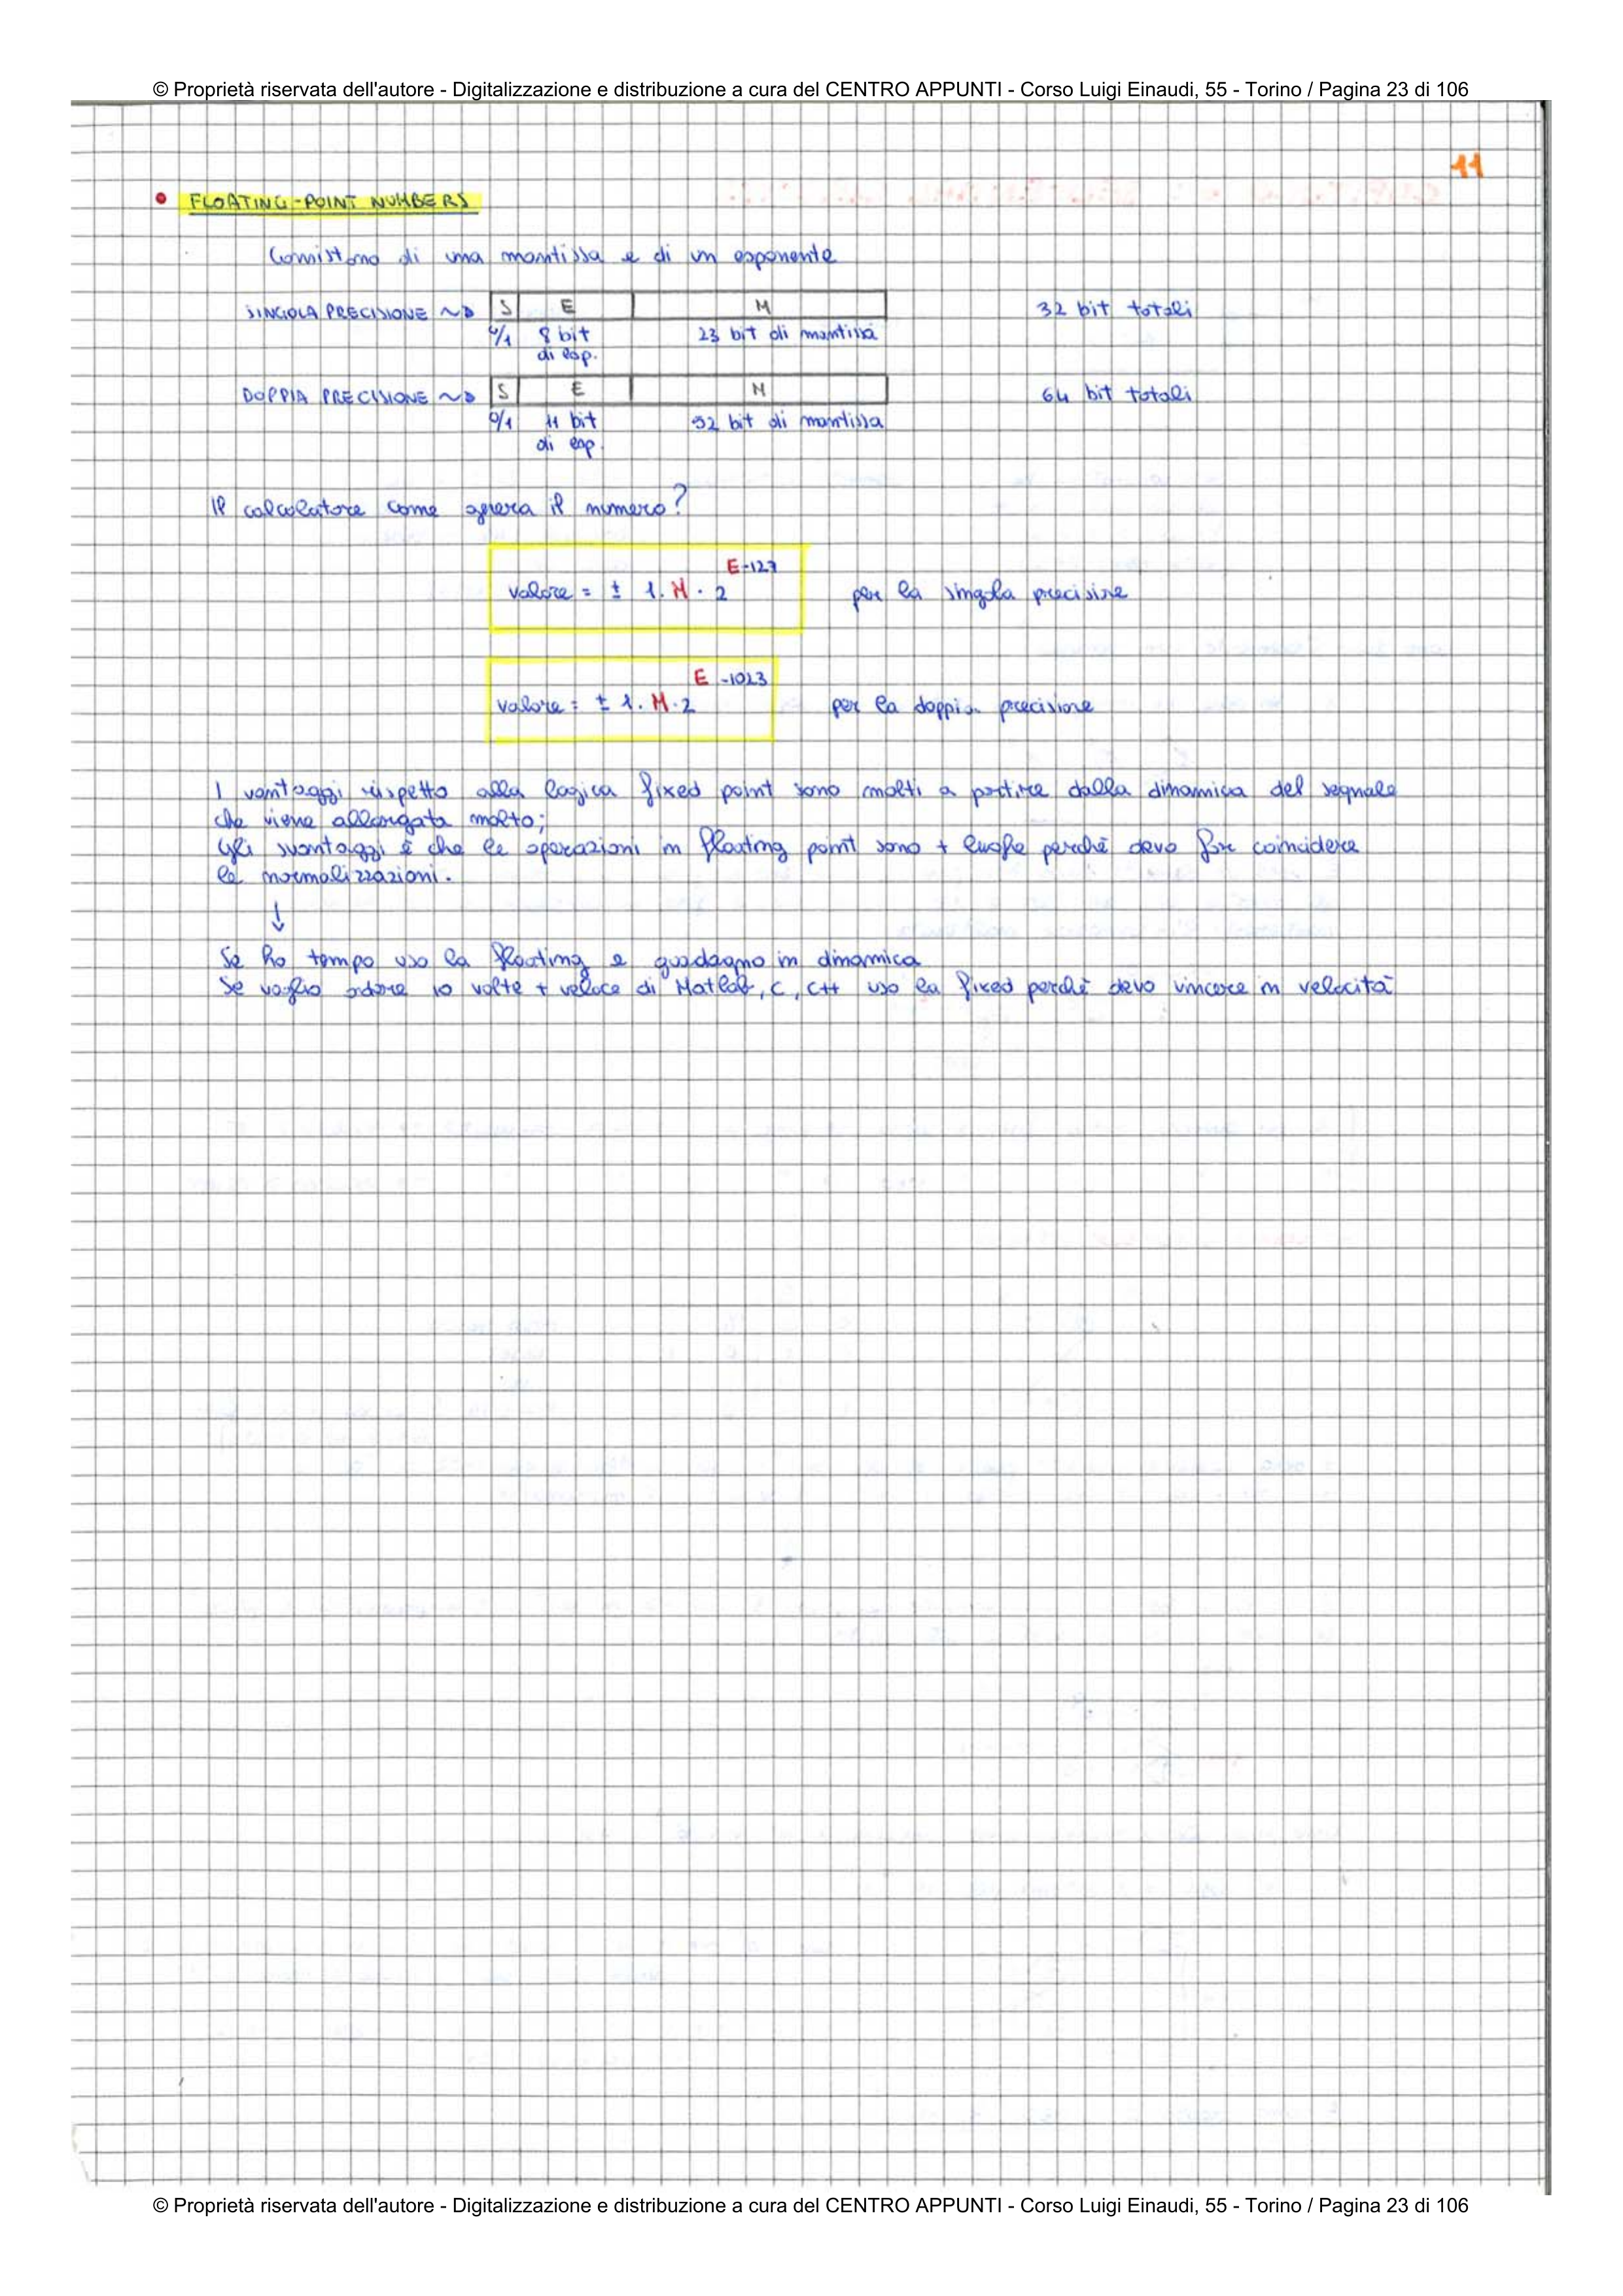 © Proprietà riservata dell'autore - Digitalizzazione e distribuzione a cura del CENTRO APPUNTI - Corso Luigi Einaudi, 55 - Torino / Pagina 23 di 106
11
• FLOATING-POINT NUMBERS
Consistono di una mantissa e di un esponente
SINGOLA PRECISIONE ~> S E M 32 bit totali
0/1 8 bit 23 bit di mantissa
di esp.
DOPPIA PRECISIONE ~> S E M 64 bit totali
0/1 11 bit 52 bit di mantissa
di esp.
Il calcolatore come genera il numero?
valore = ± 1.M · 2^E-127 per la singola precisione
valore = ± 1.M · 2^E-1023 per la doppia precisione
I vantaggi rispetto alla logica fixed point sono molti a partire dalla dinamica del segnale
che viene allargata molto;
Gli svantaggi è che le operazioni in floating point sono + lunghe perchè devo far coincidere
le normalizzazioni.
↓
Se ho tempo uso la floating e guadagno in dinamica
Se voglio andare 10 volte + veloce di Matlab, C, C++ uso la fixed perchè devo vincere in velocità
© Proprietà riservata dell'autore - Digitalizzazione e distribuzione a cura del CENTRO APPUNTI - Corso Luigi Einaudi, 55 - Torino / Pagina 23 di 106